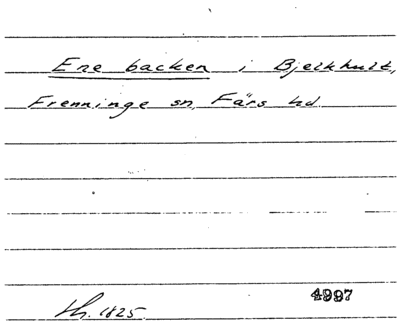 Ene backen i Bjelkhult,
Frenninge sn, Färs hd
4997
Lh. 1825.